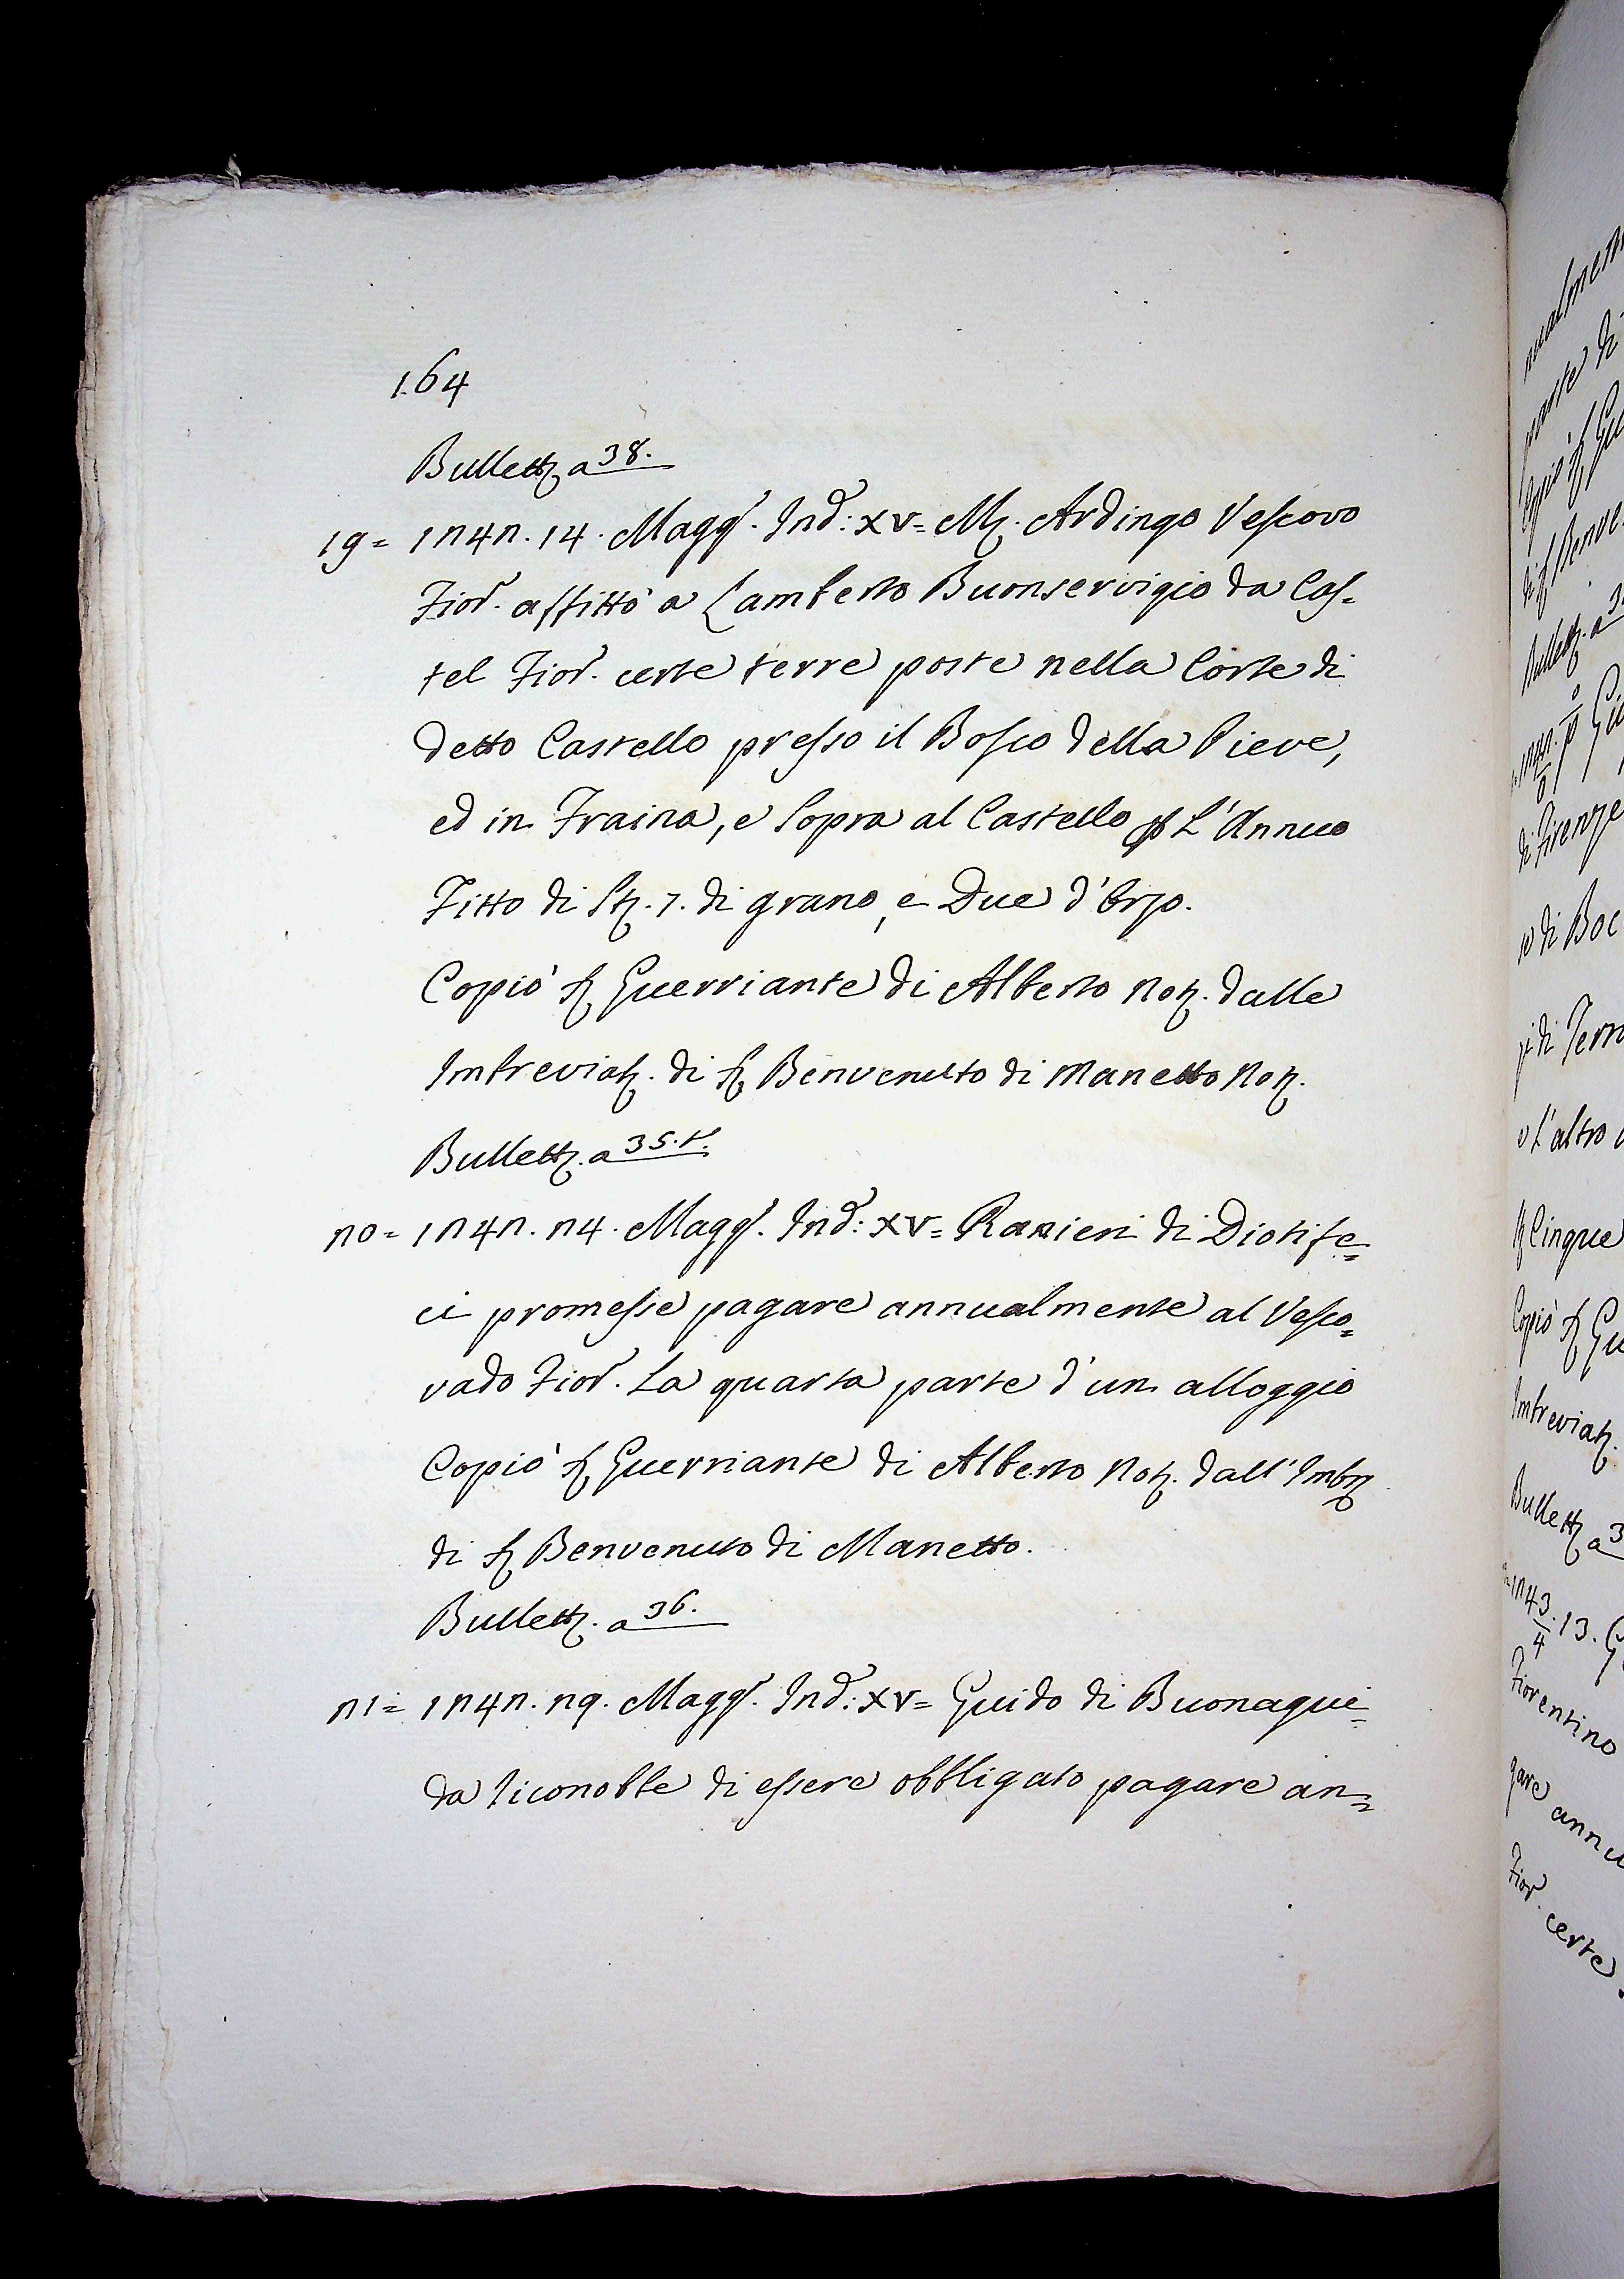 164
Bullett. a 38.
19 = 1242. 14. Magg. Ind: XV = M. Ardingo Vescovo
Fior. affittò a Lamberto Buonservigio da Cas-
tel Fior. certe terre poste nella Corte di
detto Castello presso il Bosco della Pieve,
ed in Fraina, e Sopra al Castello p L'Annuo
Fitto di St. 7. di grano, e Due d'Orzo.
Copiò S. Guerriante di Alberto Not. dalle
Imbreviat. di S. Benvenuto di Manetto Not.
Bullett. a 35. t.
20 = 1242. 24. Magg. Ind: XV = Ranieri di Diotife=
ci promesse pagare annualmente al Vesco=
vado Fior. La quarta parte d'un alloggio
Copiò S. Guerriante di Alberto Not. dall'Imbr.
di S. Benvenuto di Manetto.
Bullett. a 36.
21 = 1242. 29. Magg. Ind: XV = Guido di Buonagui=
da riconobbe di essere obbligato pagare an=
nualmen
parte di
Copiò S. Gu
di S. Benve
Bullett. a 3
1242.
di Firenze
di Boc
di Terr
L'altro
Cinque
Copiò S. Gu
Imbreviat.
Bullett. a 3
1243/4. 13. G
Fiorentino
gare annu
Fior. certe